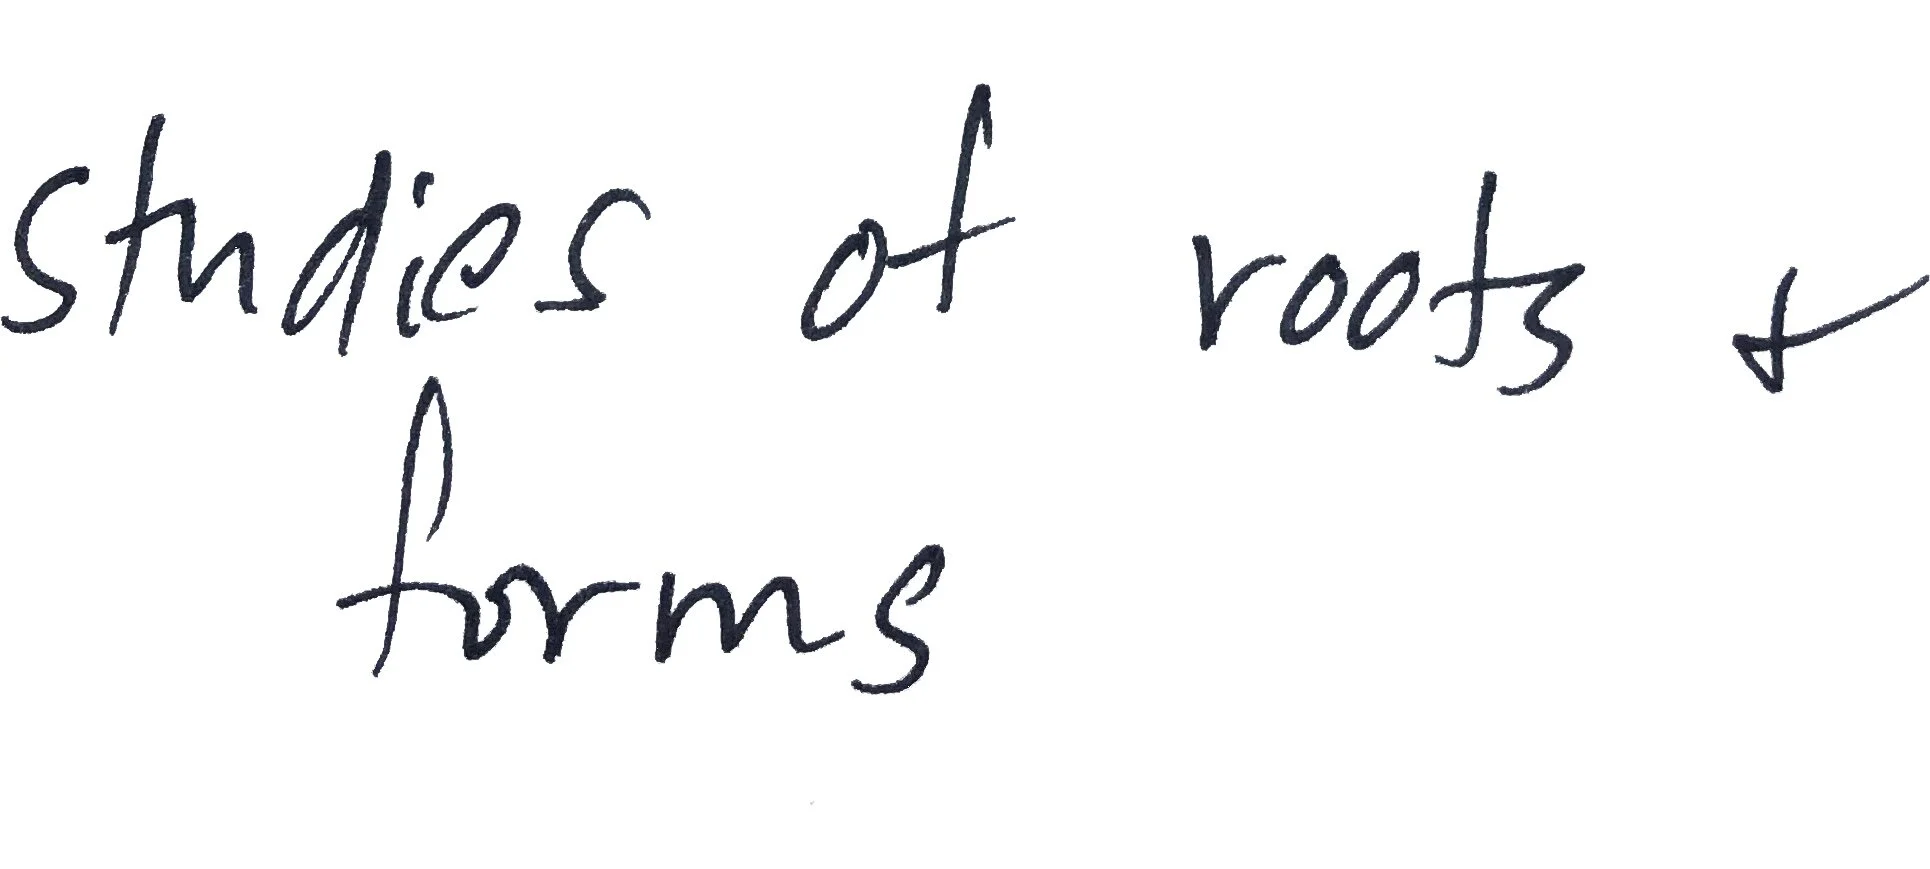 studies of roots +
forms